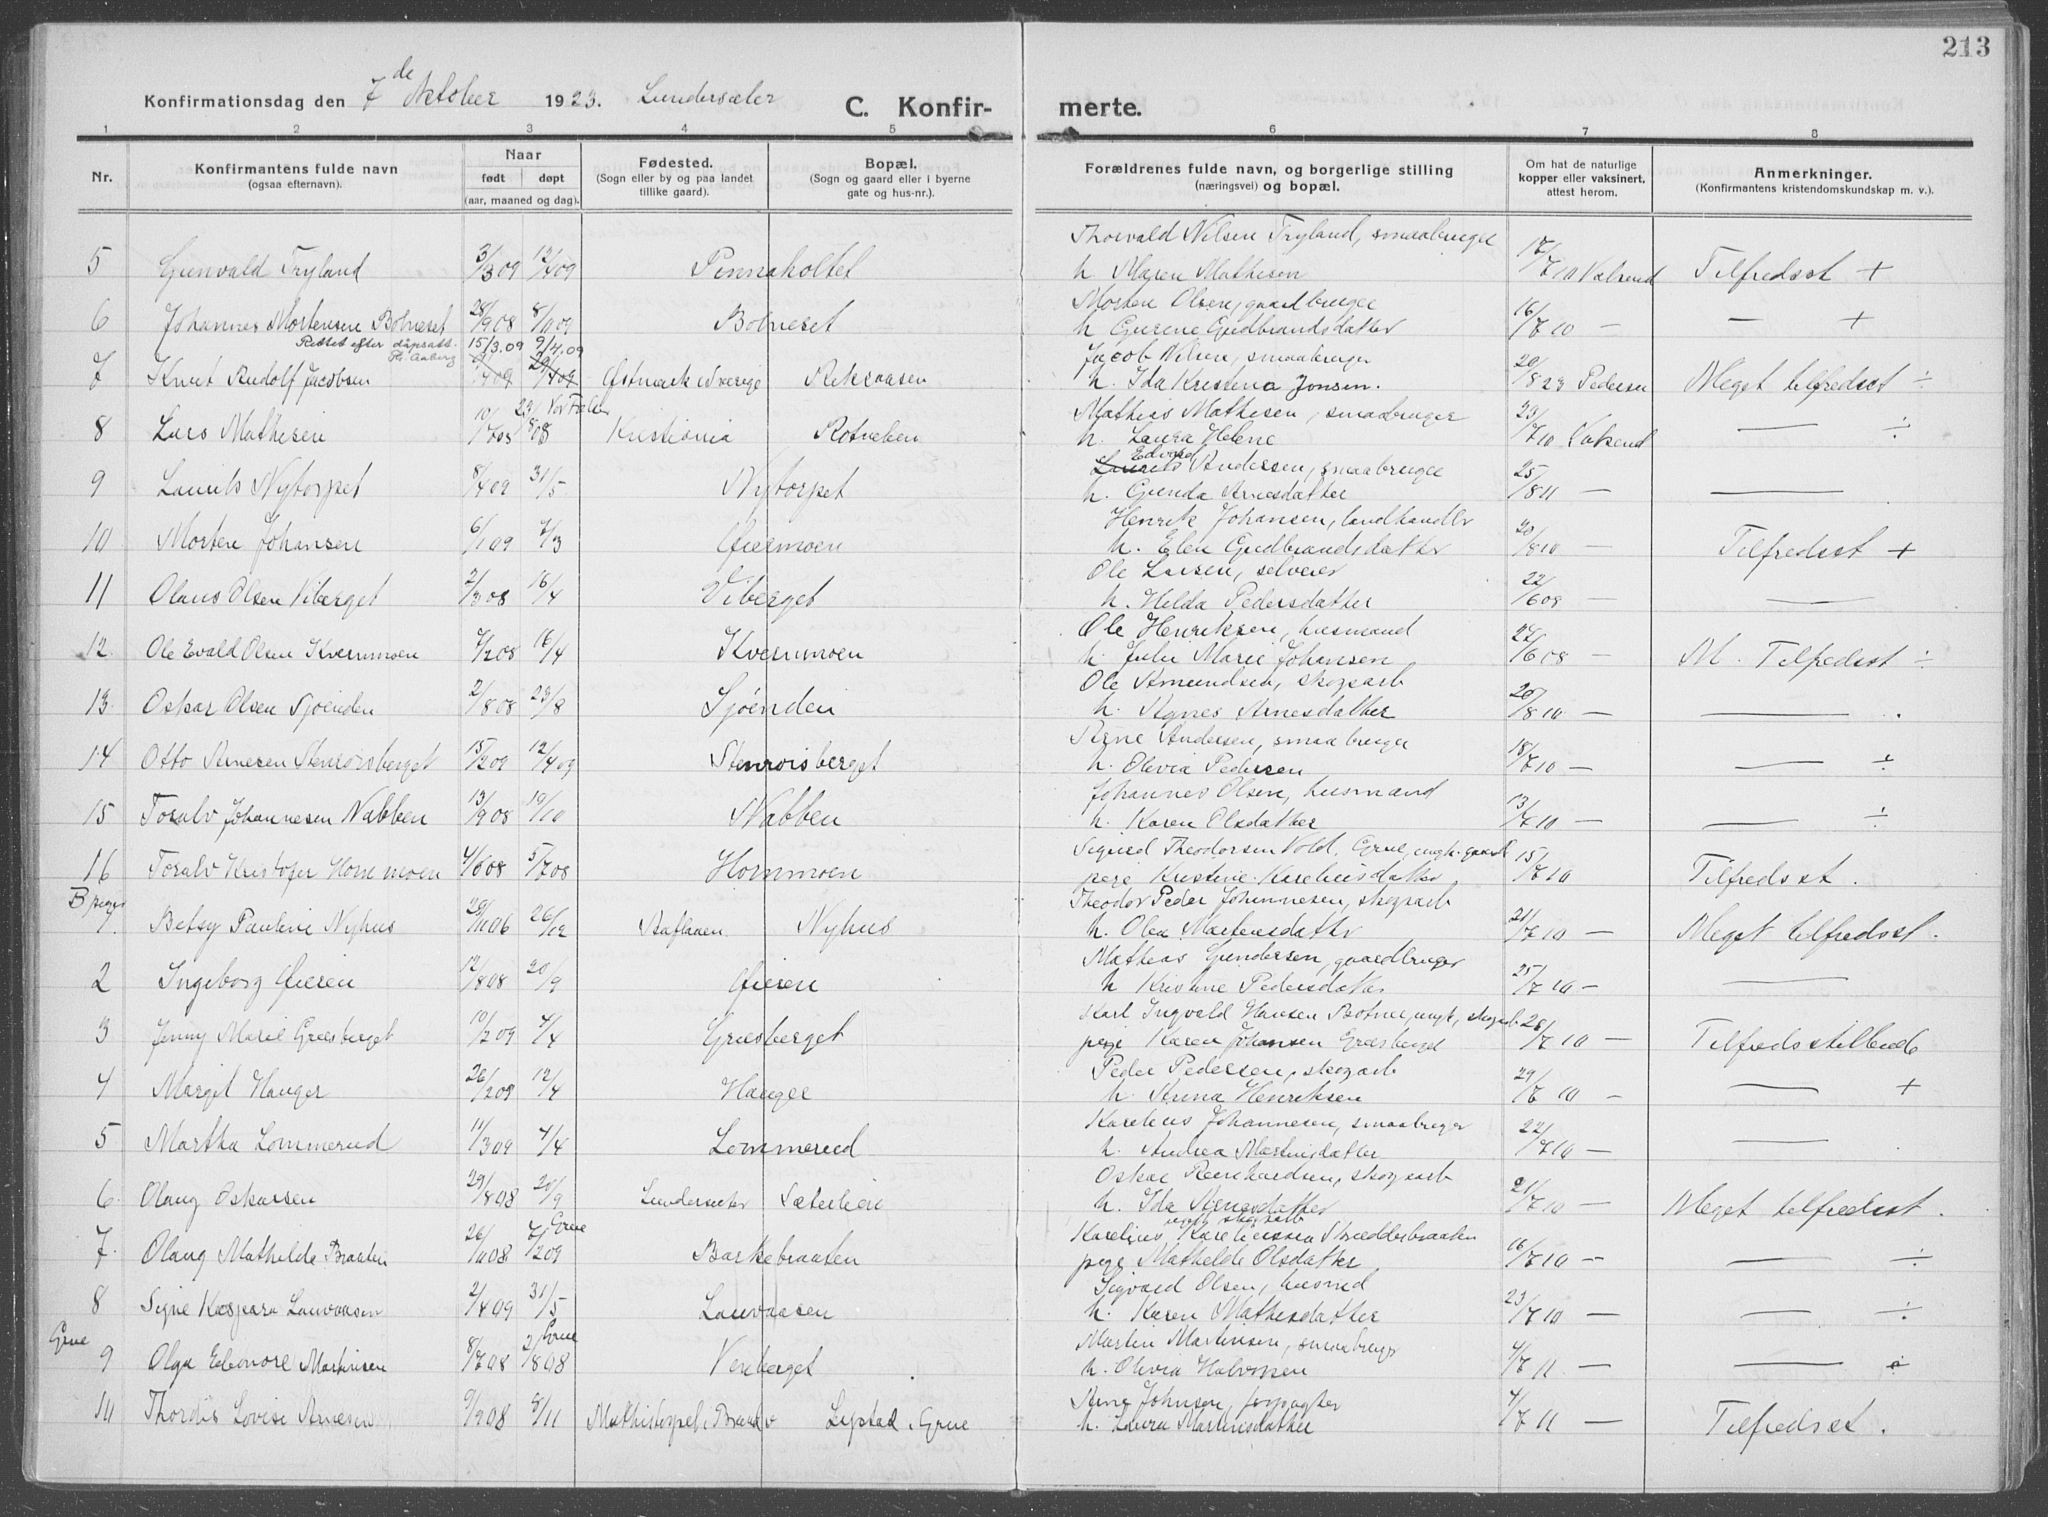 213
Konfirmationsdag den 7de Oktober 1923. Lundersæter C. Konfirmerte.
1 2 3 4 5 6 7 8
Nr. Konfirmantens fulde navn (ogsaa efternavn). Naar født døpt (aar, maaned og dag). Fødested. (Sogn eller by og paa landet tillike gaard). Bopæl. (Sogn og gaard eller i byerne gate og hus-nr.). Forældrenes fulde navn, og borgerlige stilling (næringsvei) og bopæl. Om hat de naturlige kopper eller vaksinert, attest herom. Anmerkninger. (Konfirmantens kristendomskundskap m. v.).
Thorvald Nilsen Tryland, smaabruger
5 Gunvald Tryland 3/3 09 12/4 09 Pennaholtet h. Maren Mathisen 17/7 10 Valsend Tilfredsst +
Morten Olsen, gaardbruger
6 Johannes Mortensen Bolneset 28/9 08 8/11 09 Bolneset h. Gurene Gudbrandsdatter 16/7 10 — — +
Rettet efter dåpsatt. Th. Aaberg 15/3.09 9/4.09 Jacob Nilsen, smaabruger
7 Knut Rudolf Jacobsen Østmark i Sverige Riksaasen h. Ida Kristena Jonsen. 20/8 23 Pedersen Meget tilfredsst ÷
Mathias Mathisen, smaabruger
8 Lars Mathisen 10/7 08 23/8 08 Vor Frelser Kristiania Rotneben h. Laura Helene 23/7 10 Valsend — ÷
Laurits Edvard Andersen, smaabruger
9 Laurits Nytorpet 8/4 09 31/5 Nytorpet h. Gunda Arnesdatter 25/8 11 — —
Henrik Johansen, landhandler
10 Morten Johansen 6/1 09 7/3 Øiermoen h. Elen Gudbrandsdatter 20/8 10 — Tilfredsst +
Ole Larsen, selveier
11 Olaus Olsen Viberget 2/3 08 16/4 Viberget h. Helda Pedersdatter 22/6 08 — —
Ole Henriksen, husmand
12 Ole Evald Olsen Kvernmoen 7/2 08 16/4 Kvernmoen h. Julie Marie Johansen 27/6 08 — M. Tilfredsst ÷
Ole Amundsen, skogsarb
13 Oskar Olsen Sjøenden 2/8 08 23/8 Sjøenden h. Agnes Arnesdatter 20/8 10 — — .
Arne Andersen, smaabruger
14 Otto Arnesen Stenroisberget 15/2 09 12/4 09 Stenroisberget h. Olivia Pedersen 18/7 10 — — ÷
Johannes Olsen, husmand
15 Toralv Johannesen Nabben 13/9 08 19/10 Nabben h. Karen Olsdatter 13/7 10 — — ÷
Sigurd Theodorsen Vold, Grue, ungk. gaardb
16 Toralv Kristofer Hommoen 4/6 08 5/7 08 Hommoen pige Kristine Kareliusdatter 15/7 10 Tilfredsst .
B piger Theodor Peder Johannesen, skogsarb
1. Betsy Pauline Nyhus 29/11 06 26/12 Aaflaaen Nyhus h. Olea Martinsdatter 21/7 10 — Meget tilfredsst .
Mathias Gundersen, gaardbruger
2 Ingeborg Øieren 12/8 08 20/9 Øieren h Kristine Pedersdatter 25/7 10 — —
Karl Ingvald Hansen Botner, ungk, skogsarb
3 Jenny Marie Græsberget 10/2 09 4/4 Græsberget pige Karen Johansen Græsberget 28/7 10 — Tilfredsstillende
Peder Pedersen, skogsarb
4 Margit Hauger 26/2 09 12/4 Hauger h. Anna Henriksen 29/7 10 — — +
Karelius Johannesen, smaabruger
5 Martha Lommerud 11/3 09 4/4 Lommerud h. Andrea Martinsdatter 22/7 10 — —
Oskar Reinhardsen, skogsarb
6. Olaug Oskarsen 29/8 08 20/9 Lundersæter Sæterlien h. Ida Arnesdatter 21/7 10 — Meget tilfredsst .
Karelius Kareliussen Skredderbraaten
ungk skogsarb
7. Olaug Mathilde Braaten 26/11 08 7/2 09 Grue Barkebraaten pige Mathelde Olsdatter 16/7 10 — — ÷
Sigvard Olsen, husmd
8 Signe Kaspara Lauvaasen 2/4 09 31/5 Lauvaasen h. Karen Mathisdatter 23/7 10 — — ÷
Grue Martin Martinsen, smaabruger
9 Olga Eleonore Martinsen 8/7 08 2/8 08 Grue Venberget h. Olivia Halvorsen 4/7 11 — — ÷
Arne Johnsen, forpagter
10 Thordis Lovise Arnesen 9/9 08 8/11 Mathistorpet, Brandv Lystad i Grue h. Laura Martinsdatter 4/7 11 — Tilfredsst .